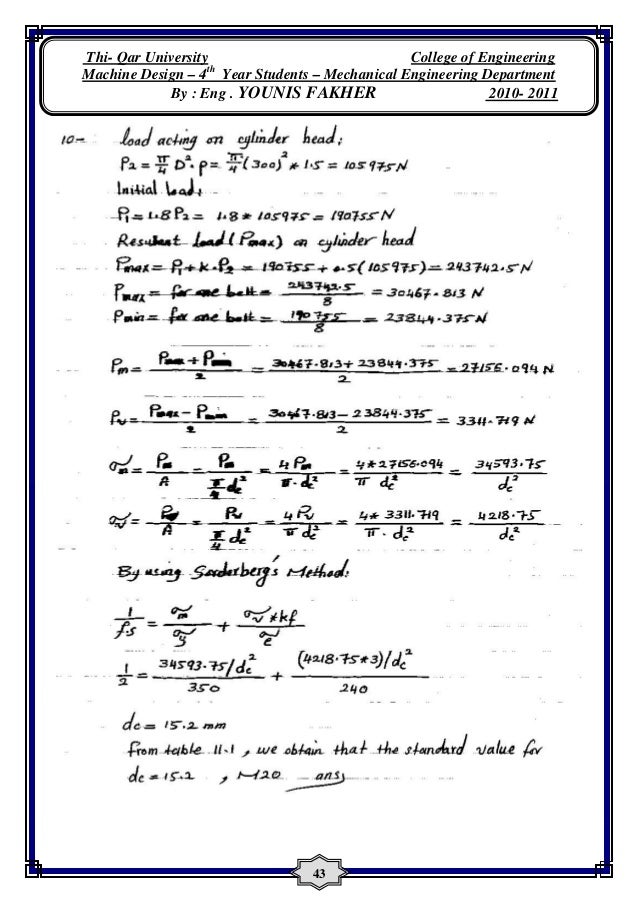 Thi- Qar University College of Engineering
Machine Design – 4th Year Students – Mechanical Engineering Department
By : Eng . YOUNIS FAKHER 2010- 2011
10- load acting on cylinder head;
P2 = π/4 D². P = π/4 (300)² * 1.5 = 105975 N
Initial load;
P1 = 1.8 P2 = 1.8 * 105975 = 190755 N
Resultant load (Pmax) on cylinder head
Pmax = P1 + K. P2 = 190755 + 0.5 (105975) = 243742.5 N
Pmax = for one bolt = 243742.5/8 = 30467.813 N
Pmin = for one bolt = 190755/8 = 23844.375 N
Pm = (Pmax + Pmin)/2 = (30467.813 + 23844.375)/2 = 27156.094 N
Pv = (Pmax - Pmin)/2 = (30467.813 - 23844.375)/2 = 3311.719 N
σm = Pm/A = Pm/(π/4 dc²) = 4Pm/(π. dc²) = (4*27156.094)/(π dc²) = 34593.75/dc²
σv = Pv/A = Pv/(π/4 dc²) = 4Pv/(π dc²) = (4* 3311.719)/(π. dc²) = 4218.75/dc²
By using Sorderberg's Method:
1/f.s = σm/σy + (σv *kf)/σe
1/2 = (34593.75/dc²)/350 + ((4218.75*3)/dc²)/240
dc = 15.2 mm
From table 11.1, we obtain that the standard value for
dc = 15.2 , M20 ans,
43